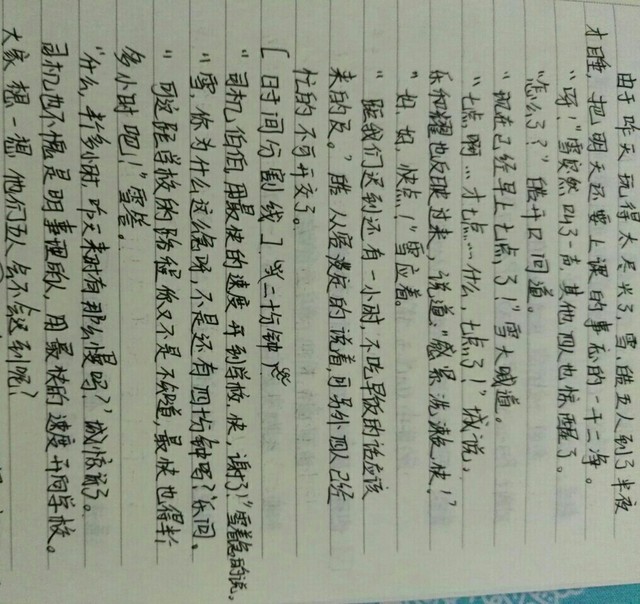 由于昨天玩得太尽兴了，雪、皓五人到了半夜
才睡，把明天还要上课的事忘的一干二净。
“呀！”雪突然叫了一声，其他四人也惊醒了。
“怎么了？”皓开口问道。
“现在已经早上七点了！”雪大喊道。
“七点啊…才七点……什么，七点了！”城说。
乐和耀也反映过来，说道：“感紧洗漱快！”
“好，好，快点！”雪应着。
“距我们迟到还有一小时，不吃早饭的话应该
来的及。”皓从容淡定的说着，可另外四人已经
忙的不可开交了。
[时间分割线]二十分钟
“司机伯伯，用最快的速度开到学校，快，谢了！”雪着急的说。
“雪，你为什么这么急呀，不是还有四十分钟吗？”乐问。
“可这距学校的路程你又不是不知道，最快也得半个
多小时吧！”雪答。
“什么，半个多小时，昨天来时有那么慢吗？”城惊讶了。
司机也不愧是明事理的人，用最快的速度开向学校。
大家想一想，他们五人会不会迟到呢？